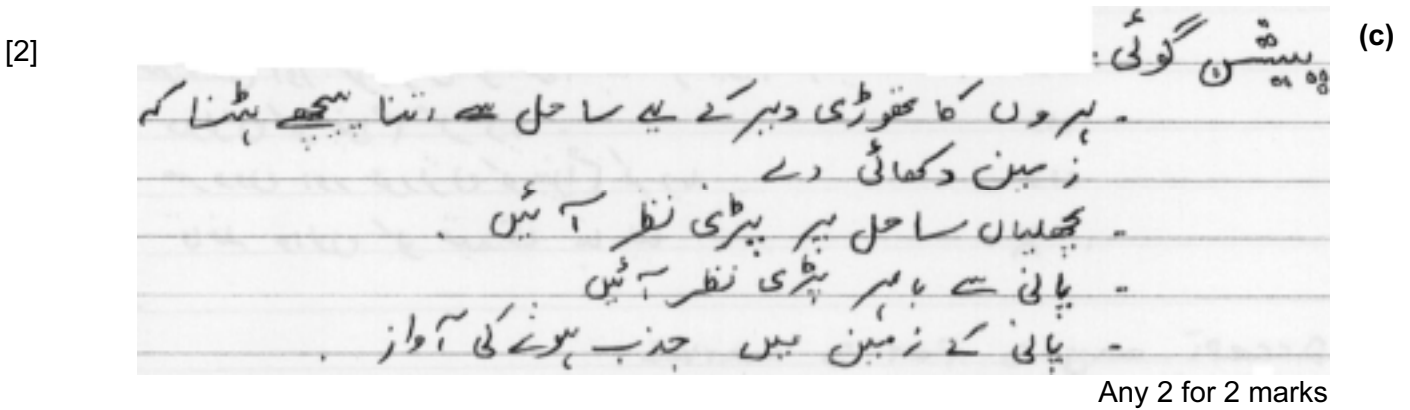 (c) پیشن گوئی : [2]
- لہروں کا تھوڑی دیر کے لیے ساحل سے اتنا پیچھے ہٹنا کہ
زمین دکھائی دے
- مچھلیاں ساحل پر پڑی نظر آئیں .
- پانی سے باہر پڑی نظر آئیں
- پانی کے زمین میں جذب ہونے کی آواز .
Any 2 for 2 marks